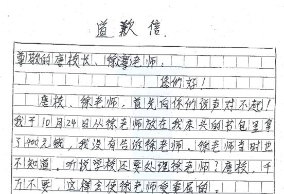 道歉信
尊敬的唐校长、徐老师，
您们好！
唐校、徐老师，首先向你们说声对不起！
我于10月24日从徐老师放在我床头的书包里拿
了400元钱，我没有告诉徐老师。徐老师当时也
不知道。听说学校还要处理徐老师？唐校，千
万不要，这样会使徐老师受委屈的。